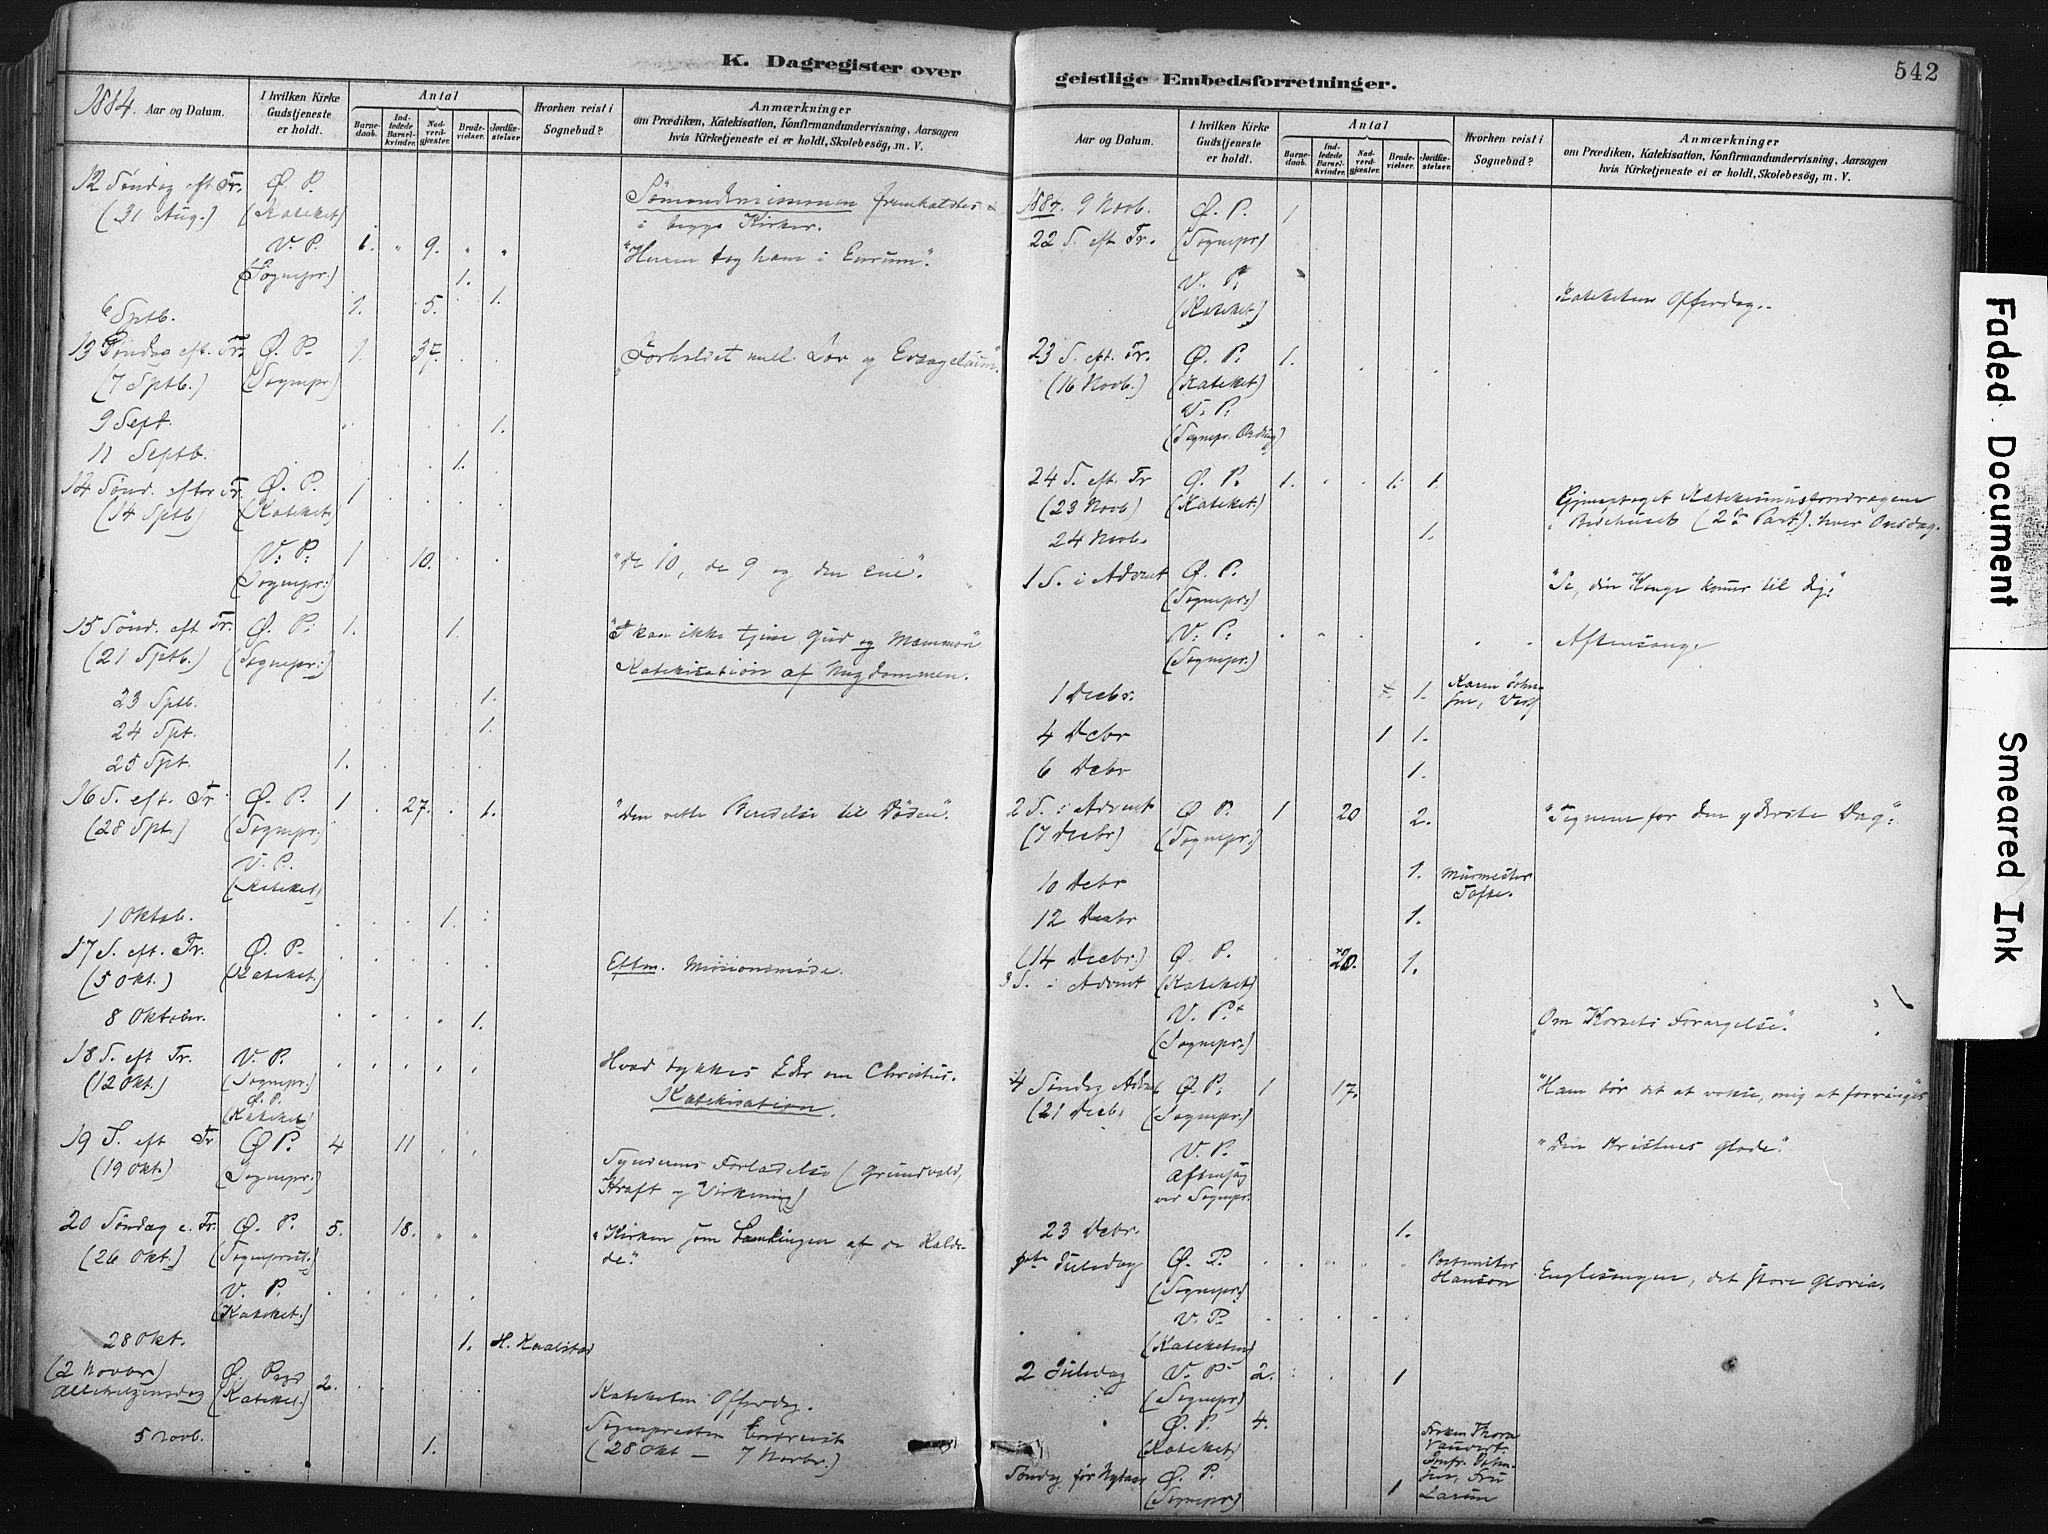 K. Dagregister over
1884. Aar og Datum.
I hvilken Kirke Gudstjeneste er holdt.
Antal
Barnedaab.
Indledede Barselkvinder.
Nadverdgjæster.
Brudevielser.
Jordfæstelser.
Hvorhen reist i Sognebud?
Anmærkninger
om Prædiken, Katekisation, Konfirmandundervisning, Aarsagen
hvis Kirketjeneste ei er holdt, Skolebesög, m. V.
12 Søndag eft. Tr. Ø. P. Sømandsmissionen fremholdtes
(31 Aug.) (Kateket) i begge Kirker.
V. P. 1. " 9. " " "Herren tog ham i Enrum".
(Sognepr.) 1.
6 Sptb. 1. 5. 1.
13 Søndag eft. Tr. Ø. P. 1. 37. "Forholdet mell. Lov og Evangelium".
(7 Sptb.) (Sognepr.)
9 Sept. 1.
11 Septb. 1.
14 Sønd. efter Tr. Ø. P. 1
(14 Sptb) (Kateket.)
V. P. 1 10. "De 10, de 9 og den ene".
(Sognepr.)
15 Sønd. eft Tr. Ø. P. 1. 1. "I kan ikke tjene Gud og Mammon"
(21 Sptb.) (Sognepr.) Katekisation af Ungdommen.
23 Sptb. 1.
24 Spt. 1.
25 Spt. 1.
16 S. eft. Tr. Ø. P. 1 27. 1. "Den rette Beredelse til Døden".
(28 Spt.) (Sognepr.)
V. P.
(Kateket)
1 Oktob. 1.
17 S. eft. Tr. Ø. P. Eftm. Missionsmøde.
(5 Okt.) (Kateket.)
8 Oktober. 1.
18 S. eft Tr. V. P. Hvad tykkes Eder om Christus.
(12 Okt.) (Sognepr.) Katekisation.
Ø. P.
(Kateket)
19 S. eft Tr. Ø P. 4 11 Syndernes Forladelse (Grundvold,
(19 Okt) (Sognepr.) Kraft og Virkning)
20 Søndag e. Tr. Ø. P. 5. 18. " " "Kirken som Samlingen af de Kald-
(26 Okt.) (Sogneprest.) de."
V. P.
(Kateket.)
28 Okt. 1. H. Kaalstad
(2 Novbr) Ø. P. 2.
Allehelgensdag (Kateket.) Kateketens Offerdag.
5 Novb. 1. Sognepresten bortreist
(28 Okt – 7 Novbr.)
geistlige Embedsforretninger.
542
Aar og Datum.
I hvilken Kirke Gudstjeneste er holdt.
Antal
Barnedaab.
Indledede Barselkvinder.
Nadverdgjæster.
Brudevielser.
Jordfæstelser.
Hvorhen reist i Sognebud?
Anmærkninger
om Prædiken, Katekisation, Konfirmandundervisning, Aarsagen
hvis Kirketjeneste ei er holdt, Skolebesög, m. V.
1884. 9 Novb. Ø. P. 1
22 S. eft Tr. (Sognepr)
V. P.
(Kateket) Kateketens Offerdag.
23 S. eft. Tr. Ø. P. 1.
(16 Novb.) (Kateket)
V. P.
24 S. eft. Tr Ø. P. 1. 1. 1.
(23 Novb) (Kateket.) Gjenoptaget
24 Novb. 1. i Bedehuset (2den Part). hver Onsdag.
1 S. i Advent Ø. P.
(Sognepr.) "Se, din Konge kommer til Dig."
V. P. Aftensang
(Sognepr.)
1 Decbr. 1. Karen
4 Decbr 1 1.
6 Decbr 1.
2 S. i Advent Ø P. 1 20 2. "Tegnene for den yderste Dag".
(7 Decbr) (Sognepr.)
10 Decbr 1. Murmester Tofte.
12 Decbr 1.
(14 Decbr.) Ø. P. 20. 1.
3 S. i Advent (Kateket)
V. P.
(Sognepr.) "Om Korsets Forargelse".
4 Søndag Advent Ø. P. 1 17. "Ham bør det at vokse, mig at forringes"
(21 Decbr (Sognepr.)
V. P. "Den Kristnes Glæde."
Aftensang
ved Sognepr.
23 Decbr. 1.
Juledag Ø. P. Postmester Hanson Englesangen, det store Gloria.
(Sognepr.)
V. P.
(Kateketen)
2 Juledag V. P. 2. 1
(Sognepr)
Ø. P. 4.
(Kateket)
Søndag før Nytaar Ø. P. 1
(Sognepr.) Larum
Faded Document
Smeared Ink